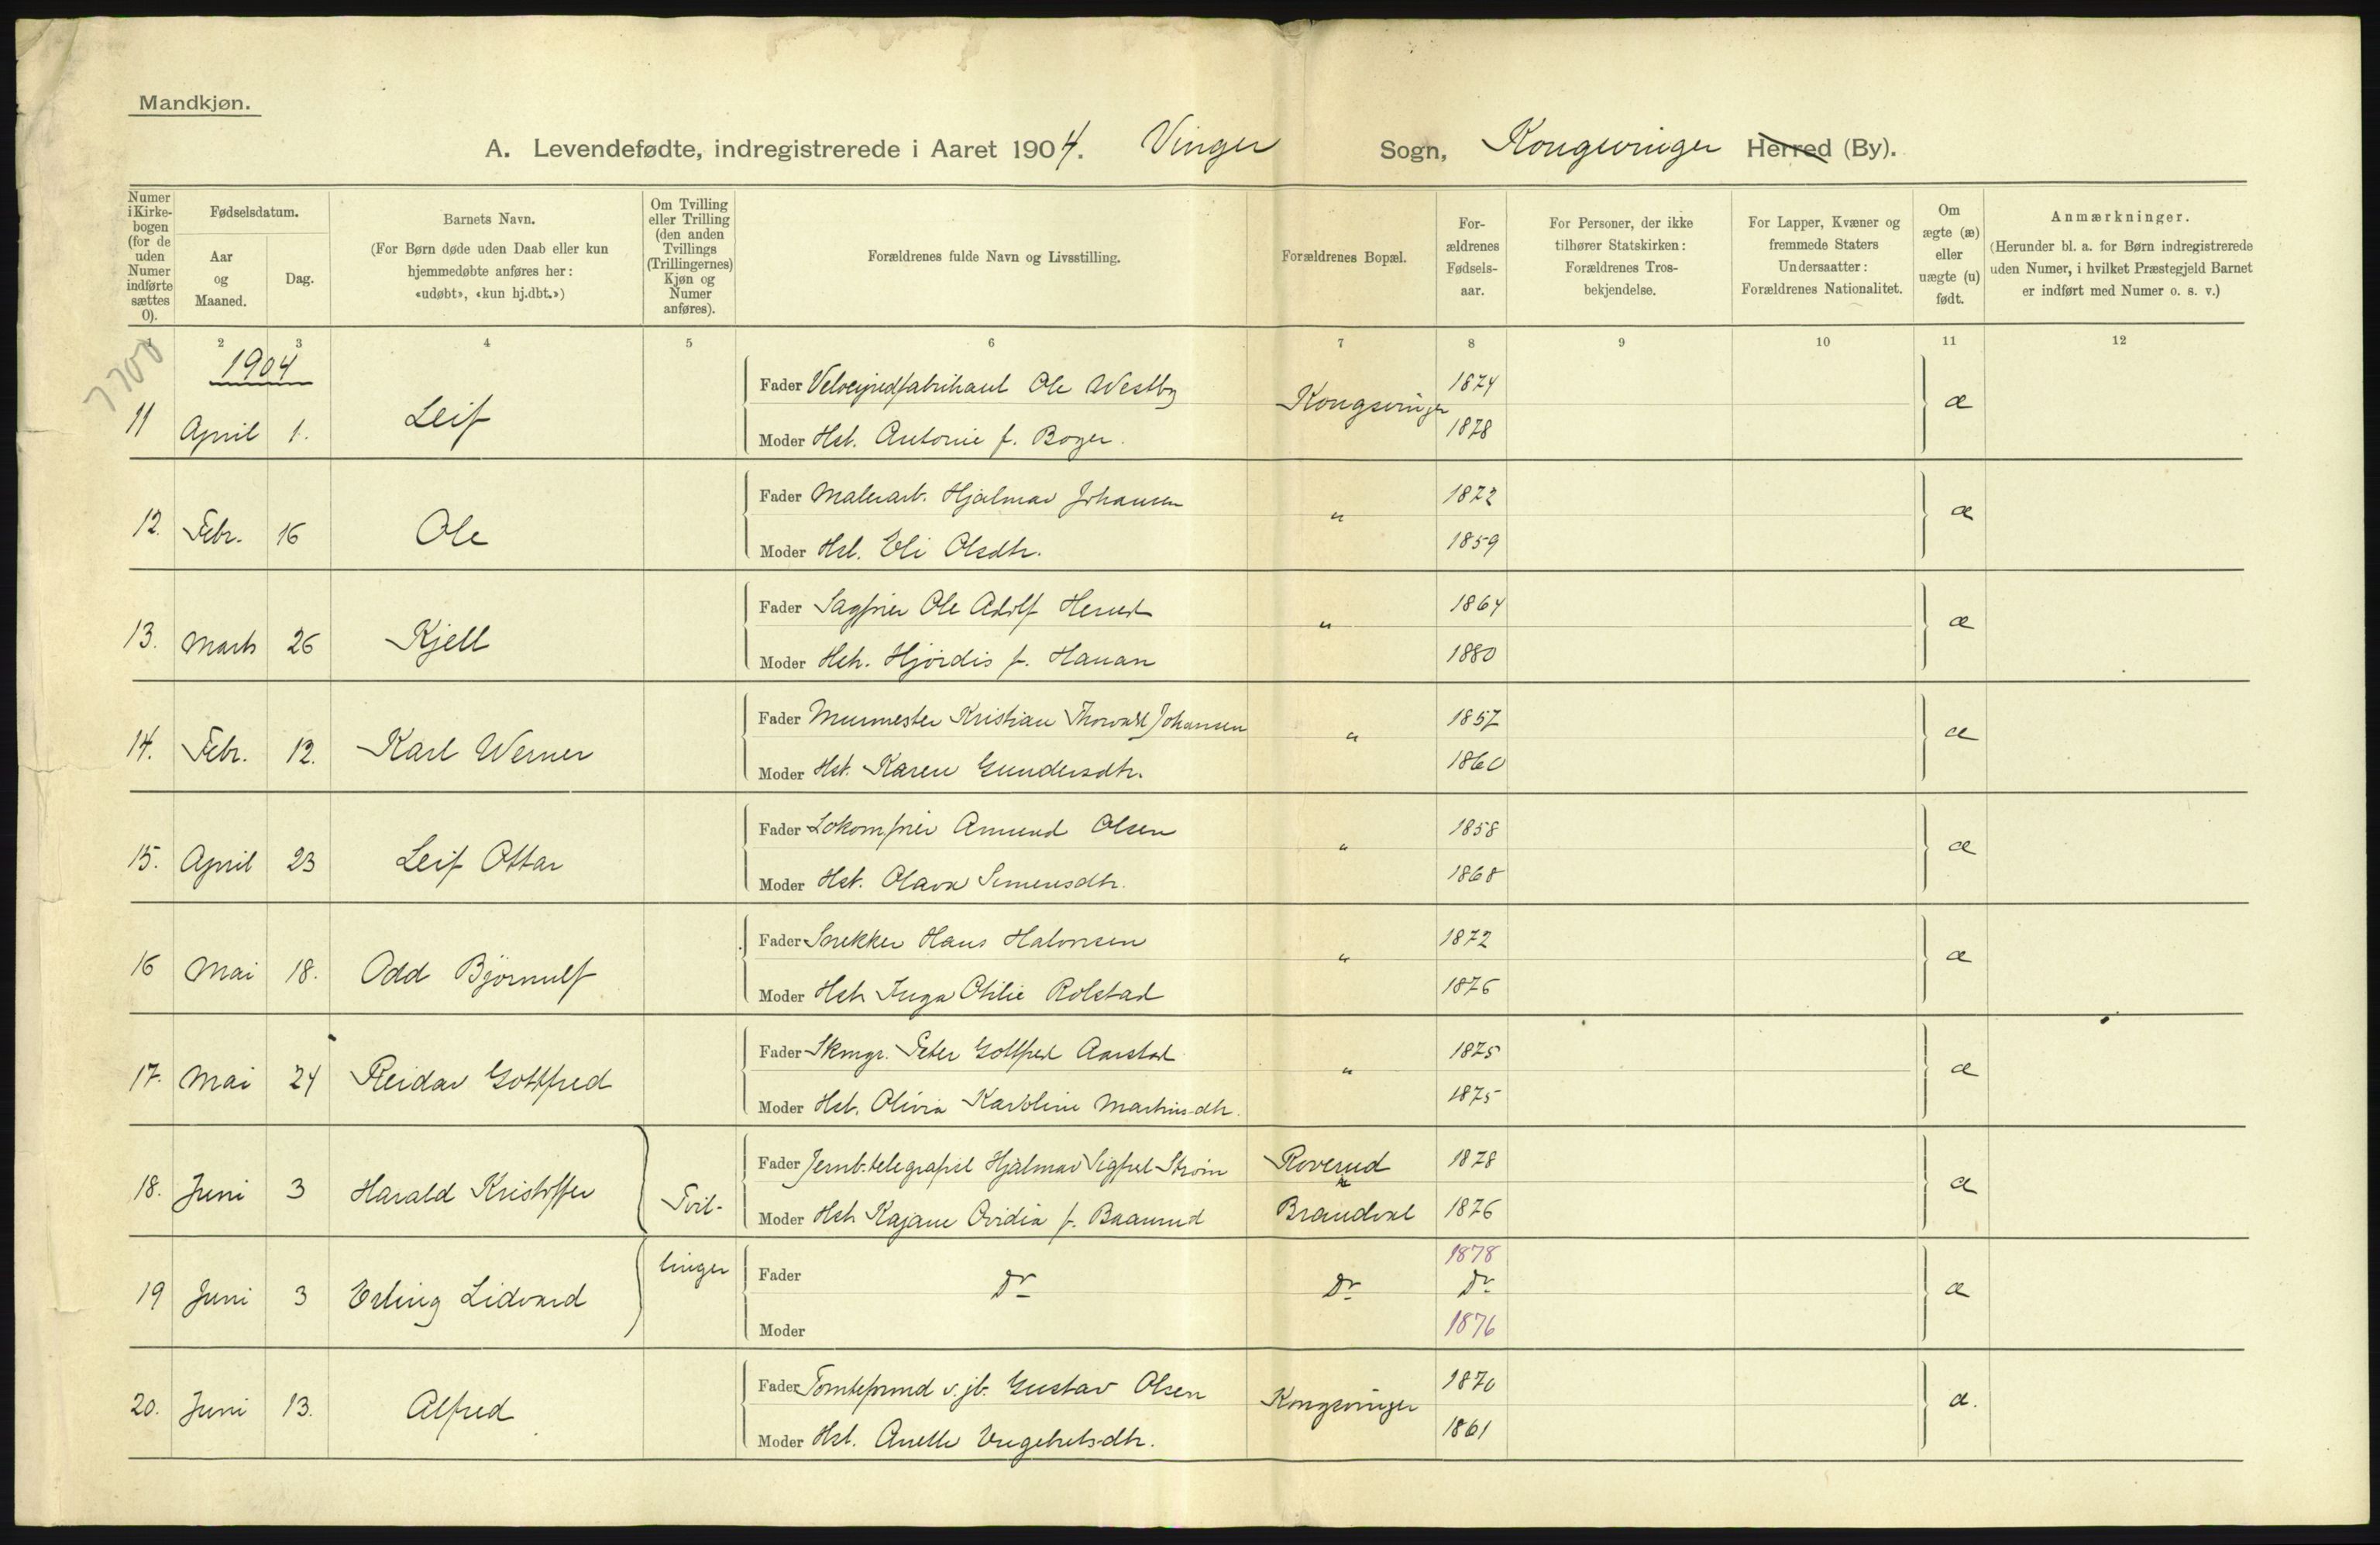 Mandkjøn.
A. Levendefødte, indregistrerede i Aaret 1904. Vinger Sogn, Kongsvinger Herred (By).
Numer i Kirkebogen (for de uden Numer indførte sættes 0).
Fødselsdatum.
Aar og Maaned.
Dag.
Barnets Navn.
(For Børn døde uden Daab eller kun hjemmedøbte anføres her: «udøbt», «kun hj.dbt.»)
Om Tvilling eller Trilling (den anden Tvillings (Trillingernes) Kjøn og Numer anføres).
Forældrenes fulde Navn og Livsstilling.
Forældrenes Bopæl.
Forældrenes Fødselsaar.
For Personer, der ikke tilhører Statskirken: Forældrenes Trosbekjendelse.
For Lapper, Kvæner og fremmede Staters Undersaatter: Forældrenes Nationalitet.
Om ægte (æ) eller uægte (u) født.
Anmærkninger.
(Herunder bl. a. for Børn indregistrerede uden Numer, i hvilket Præstegjeld Barnet er indført med Numer o. s. v.)
1 2 3 4 5 6 7 8 9 10 11 12
7700
1904
11 April 1. Leif Fader Ole Westby Kongsvinger 1874 æ
Moder Hst. Antonie f. Boger. 1878
12. Febr. 16 Ole Fader Malerarb. Hjalmar Johansen " 1872 æ
Moder Hst. Eli Olsdtr. 1859
13. Marts 26 Kjell Fader Ole Adolf Herud " 1864 æ
Moder Hstr. Hjördis f. Hauan 1880
14. Febr. 12. Karl Werner Fader Murmester Kristian Thorvald Johansen " 1857 æ
Moder Hst. Karen Gundersdtr. 1860
15. April 23 Leif Ottar Fader Amund Olsen " 1858 æ
Moder Hst. Olava Simensdtr. 1868
16 Mai 18. Odd Björnulf Fader Snekker Hans Halvorsen " 1872 æ
Moder Hstr Inga Otilie Rolstad 1876
17. Mai 24 Reidar Gottfred Fader Skmgr. Peter Gottfred Aarstad " 1875 æ
Moder Hst. Olivia Karoline Martinsdtr. 1875
18. Juni 3 Harald Kristoffer Tvil- Fader Jernb.telegrafist Hjalmar Sigfred Strøm Roverud 1878 æ
Moder Hstr Kajane Ovidia f. Baanrud Brandval 1876
19 Juni 3 Erling Lidvard linger Fader Do Do 1878 Do æ
Moder 1876
20. Juni 13. Alfred Fader v. jb. Gustav Olsen Kongsvinger 1870 æ.
Moder Hst. Anette Engebretsdtr. 1861